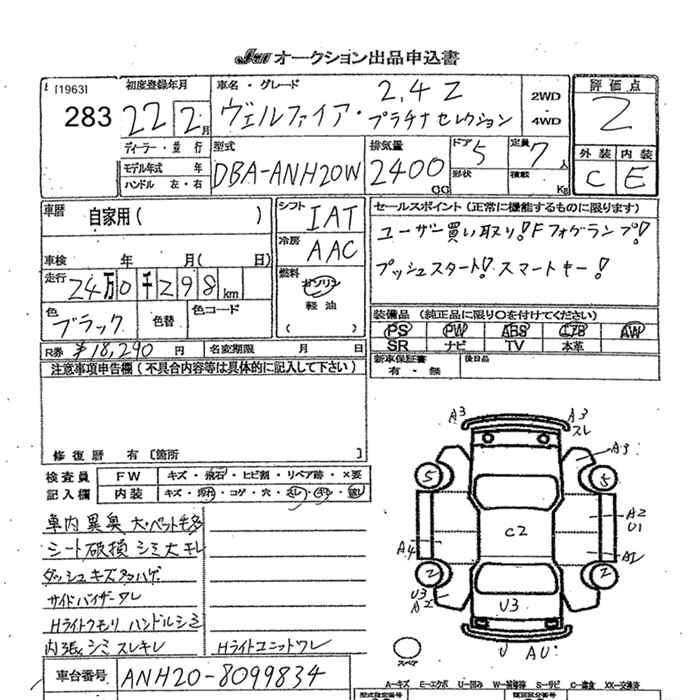 JU オークション出品申込書
[1963]
283
初度登録年月
22 2月
車名・グレード
2.4 Z
ヴェルファイア・プラチナセレクション
2WD
4WD
評価点
2
外装 内装
C E
ディーラー・並行
モデル年式 年
ハンドル 左・右
型式
DBA-ANH20W
排気量
2400
CC
ドア 5
形状
定員 7人
積載 Kg
車歴
自家用( )
シフト IAT
冷房 AAC
車検 年 月( 日)
走行 24万0千298km
燃料
ガソリン
軽油
( )
色 ブラック
色替
色コード
R券 ¥18,290 円
名変期限 月 日
セールスポイント(正常に機能するものに限ります)
ユーザー買い取り!Fフォグランプ!
プッシュスタート!スマートキー!
装備品(純正品に限り○を付けてください)
PS PW ABS エアB AW
SR ナビ TV 本革
新車保証書
有・無
後日品
注意事項申告欄(不具合内容等は具体的に記入して下さい)
修復歴 有〔箇所 〕
検査員
記入欄
FW キズ・飛石・ヒビ割・リペア跡・×要
内装 キズ・汚れ・コゲ・穴・スレ・キレ・
車内異臭大・ペット毛多
シート破損シミ大キレ
ダッシュキズ多ハゲ
サイドバイザーワレ
Hライトクモリハンドルシミ
内張シミスレキレ
Hライトユニットワレ
車台番号 ANH20-8099834
A3
A3
スレ
A3
5
5
A2
U1
C2
A4
A1
2
2
U3
A2
U3
U
AU
スペア
A−キズ E−エクボ U−凹み W−補修跡 S−サビ C−腐食 XX−交換済
型式指定番号
類別区分番号